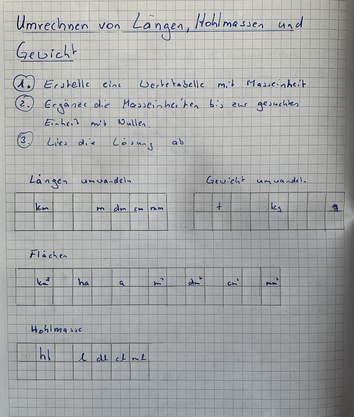 Umrechnen von Längen, Hohlmassen und
Gewicht
1. Erstelle eine Wertetabelle mit Masseinheit
2. Ergänze die Masseinheiten bis zur gesuchten
Einheit mit Nullen.
3. Lies die Lösung ab
Längen umwandeln
Gewicht umwandel.
km m dm cm mm
t kg g
Flächen
km² ha a m² dm² cm² mm²
Hohlmasse
hl l dl cl ml